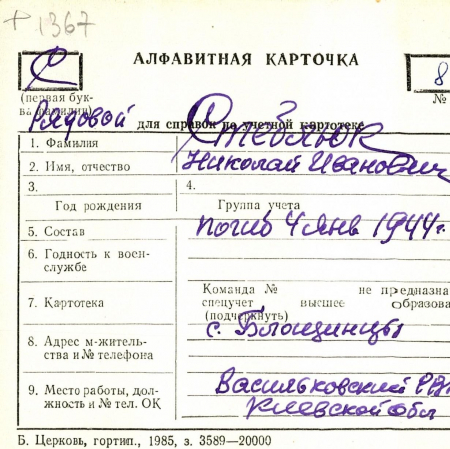 + 1367
С
АЛФАВИТНАЯ КАРТОЧКА
8
(первая бук-
ва фамилии)
№
Рядовой
для справок по учетной картотеке
1. Фамилия Стеблюк
2. Имя, отчество Николай Иванович
3. 4.
Год рождения Группа учета
5. Состав погиб 4 янв 1944 г.
6. Годность к воен-
службе
Команда № не предназна
7. Картотека спецучет высшее образова
(подчеркнуть)
8. Адрес м-житель-
ства и № телефона
с. Блощинцы
9. Место работы, дол-
жность и № тел. ОК
Васильковский РВК
Киевской обл
Б. Церковь, гортип., 1985, з. 3589—20000